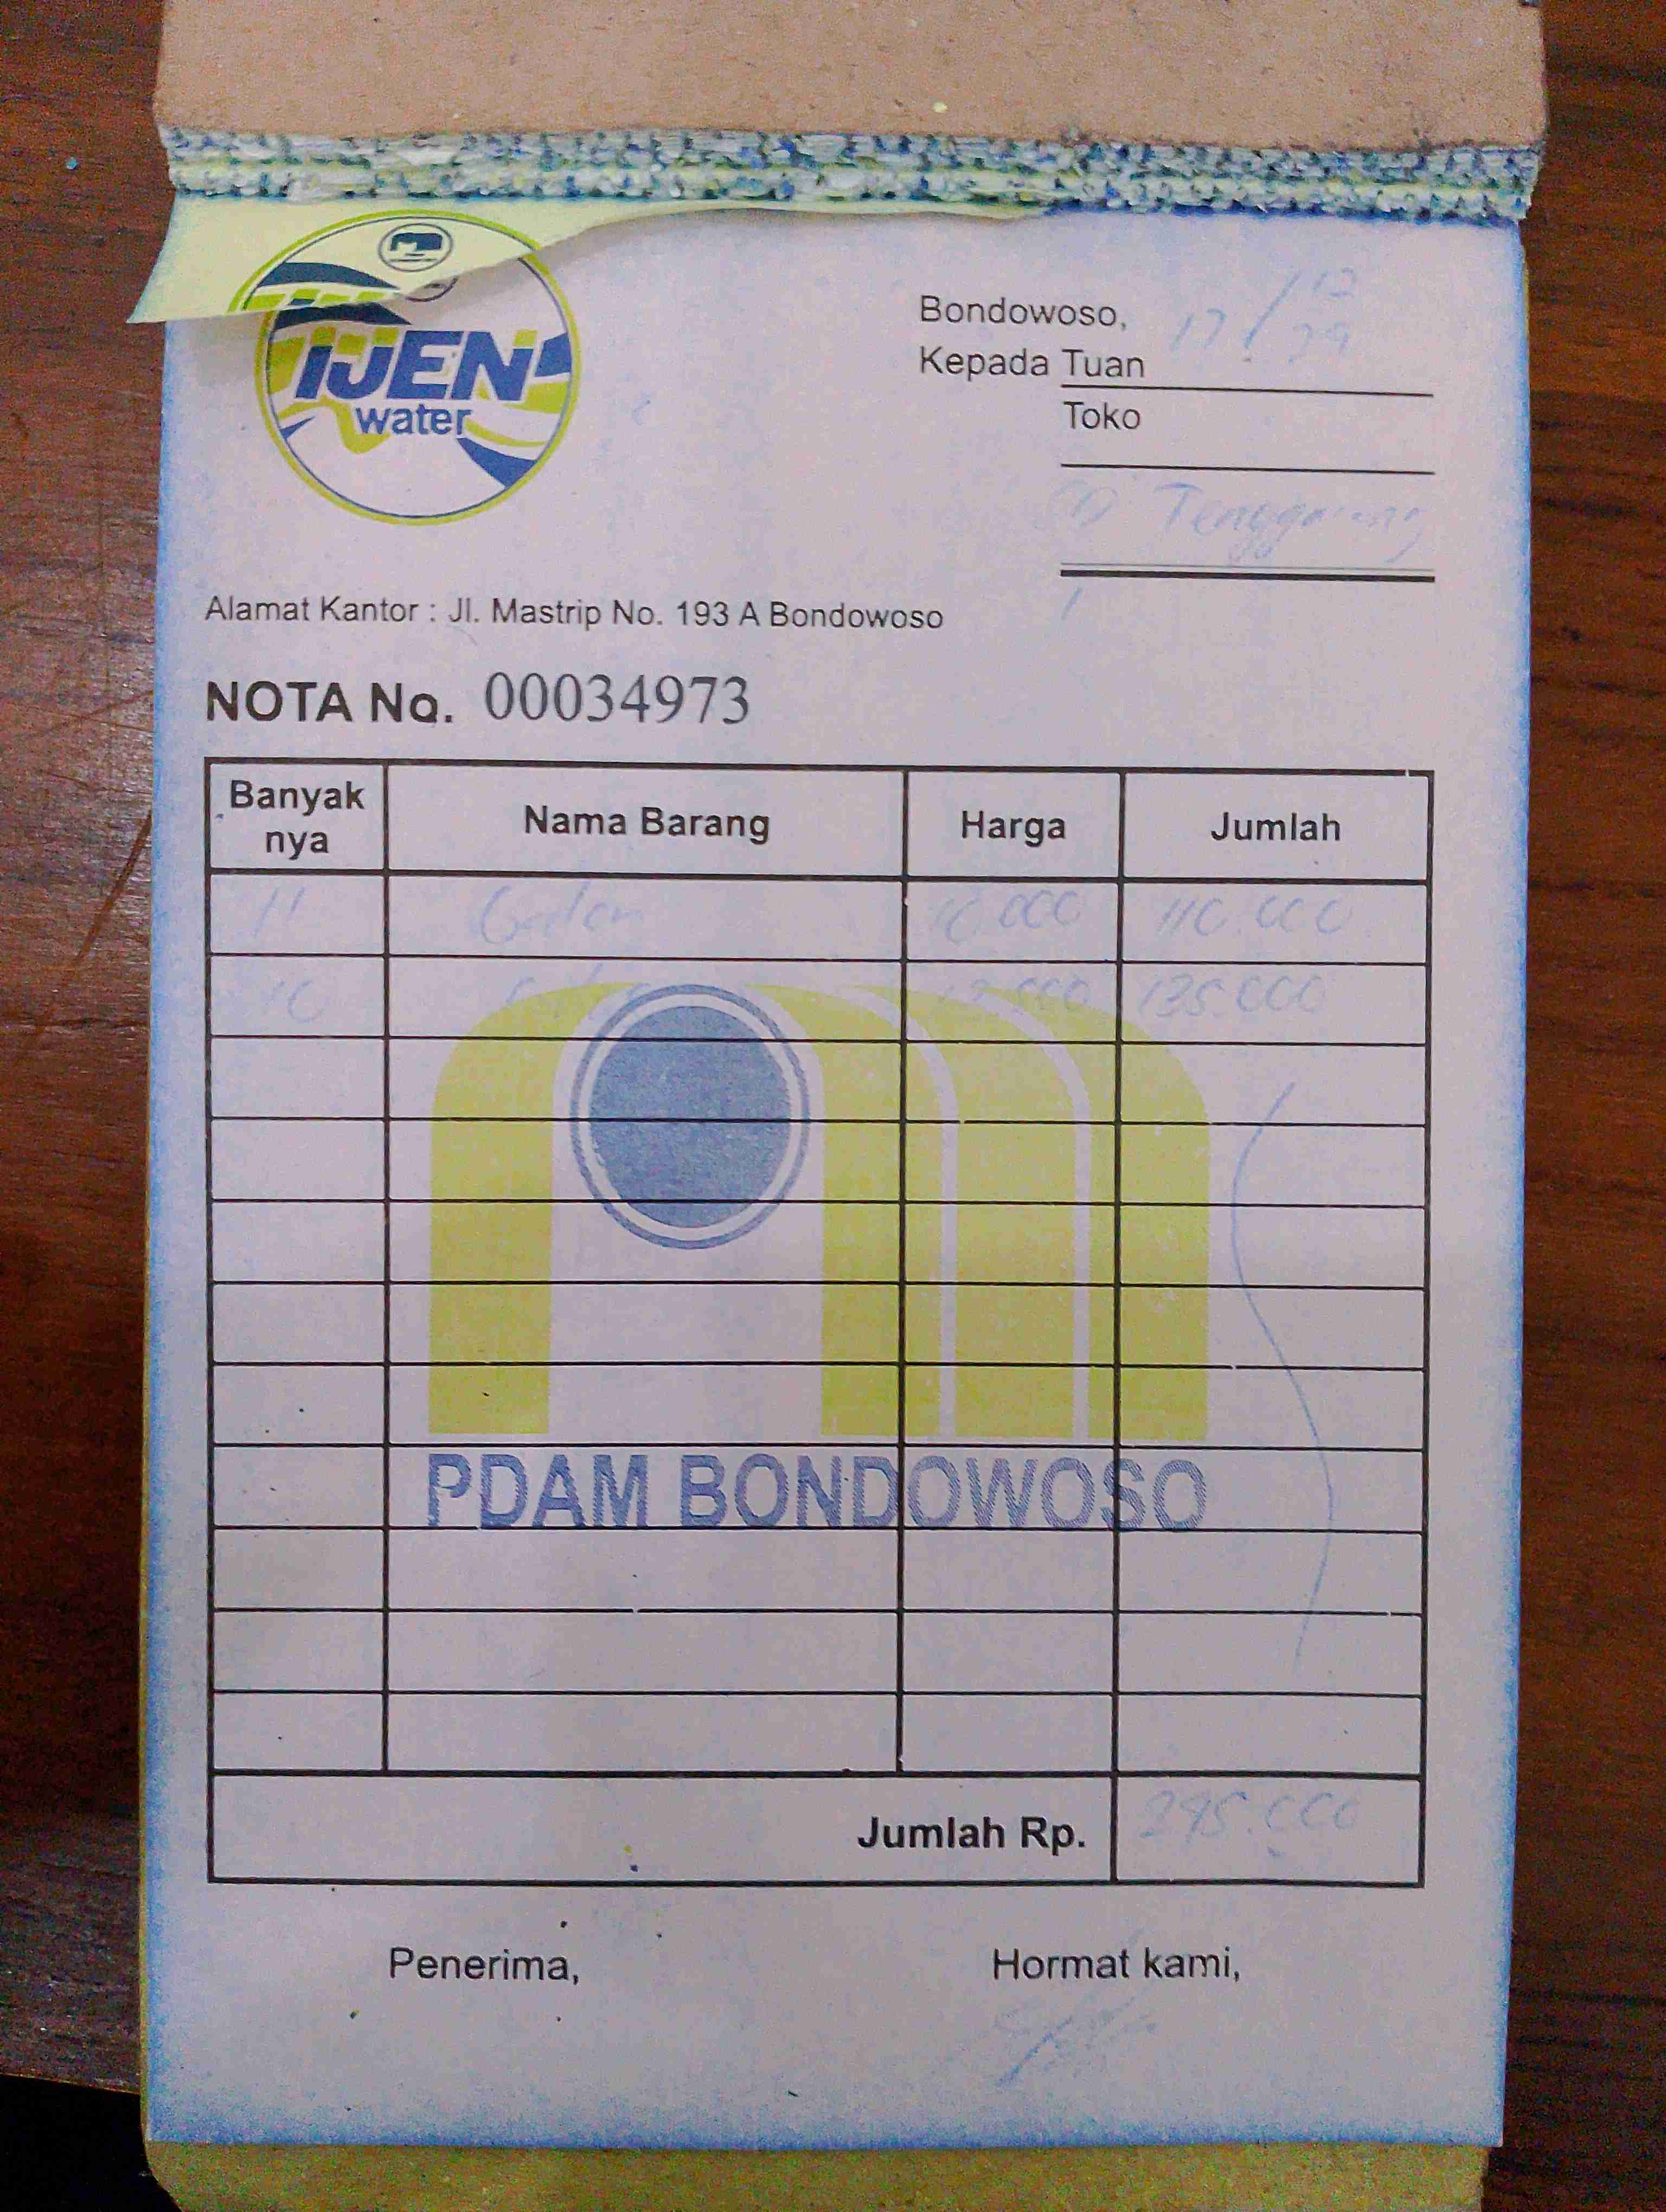 IJEN
water
Bondowoso, 17/12
Kepada Tuan
Toko
Tenggarang
Alamat Kantor : Jl. Mastrip No. 193 A Bondowoso
NOTA No. 00034973
Banyak nya Nama Barang Harga Jumlah
11 Galon 10.000 110.000
10 135.000
PDAM BONDOWOSO
Jumlah Rp. 245.000
Penerima, Hormat kami,